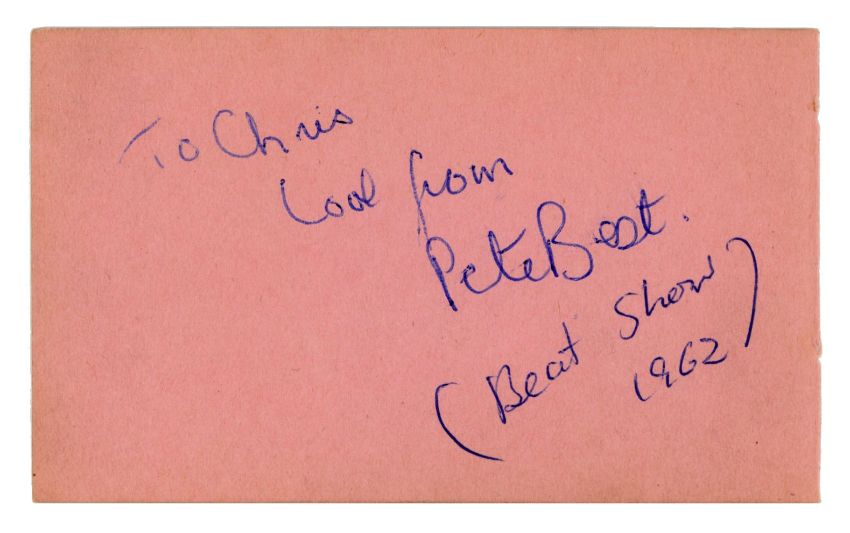 To Chris
Love from
Pete Best.
(Beat Show
1962)